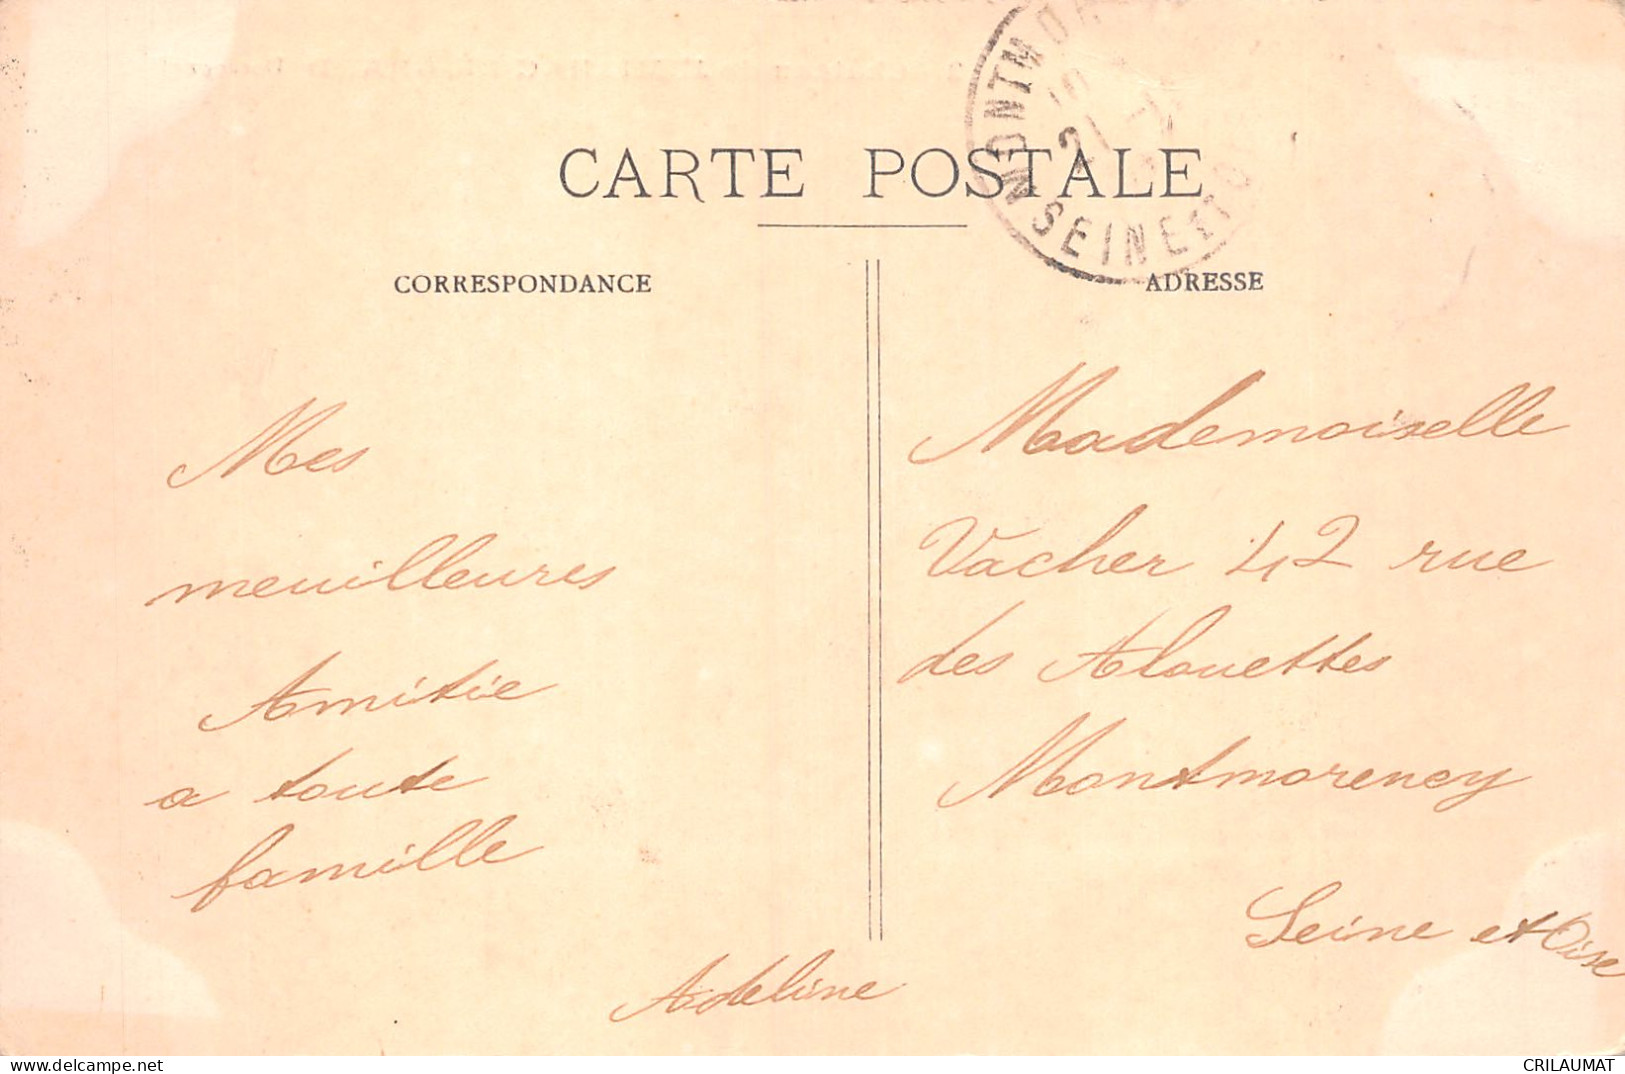 CARTE POSTALE
CORRESPONDANCE
Mes
meuilleures
Amitie
a toute
famille
Adeline
ADRESSE
Mademoiselle
Vacher 42 rue
des Alouettes
Montmorency
Seine et Oise
MONTMOR
21
SEINE ET O
delcampe.net
CRILAUMAT